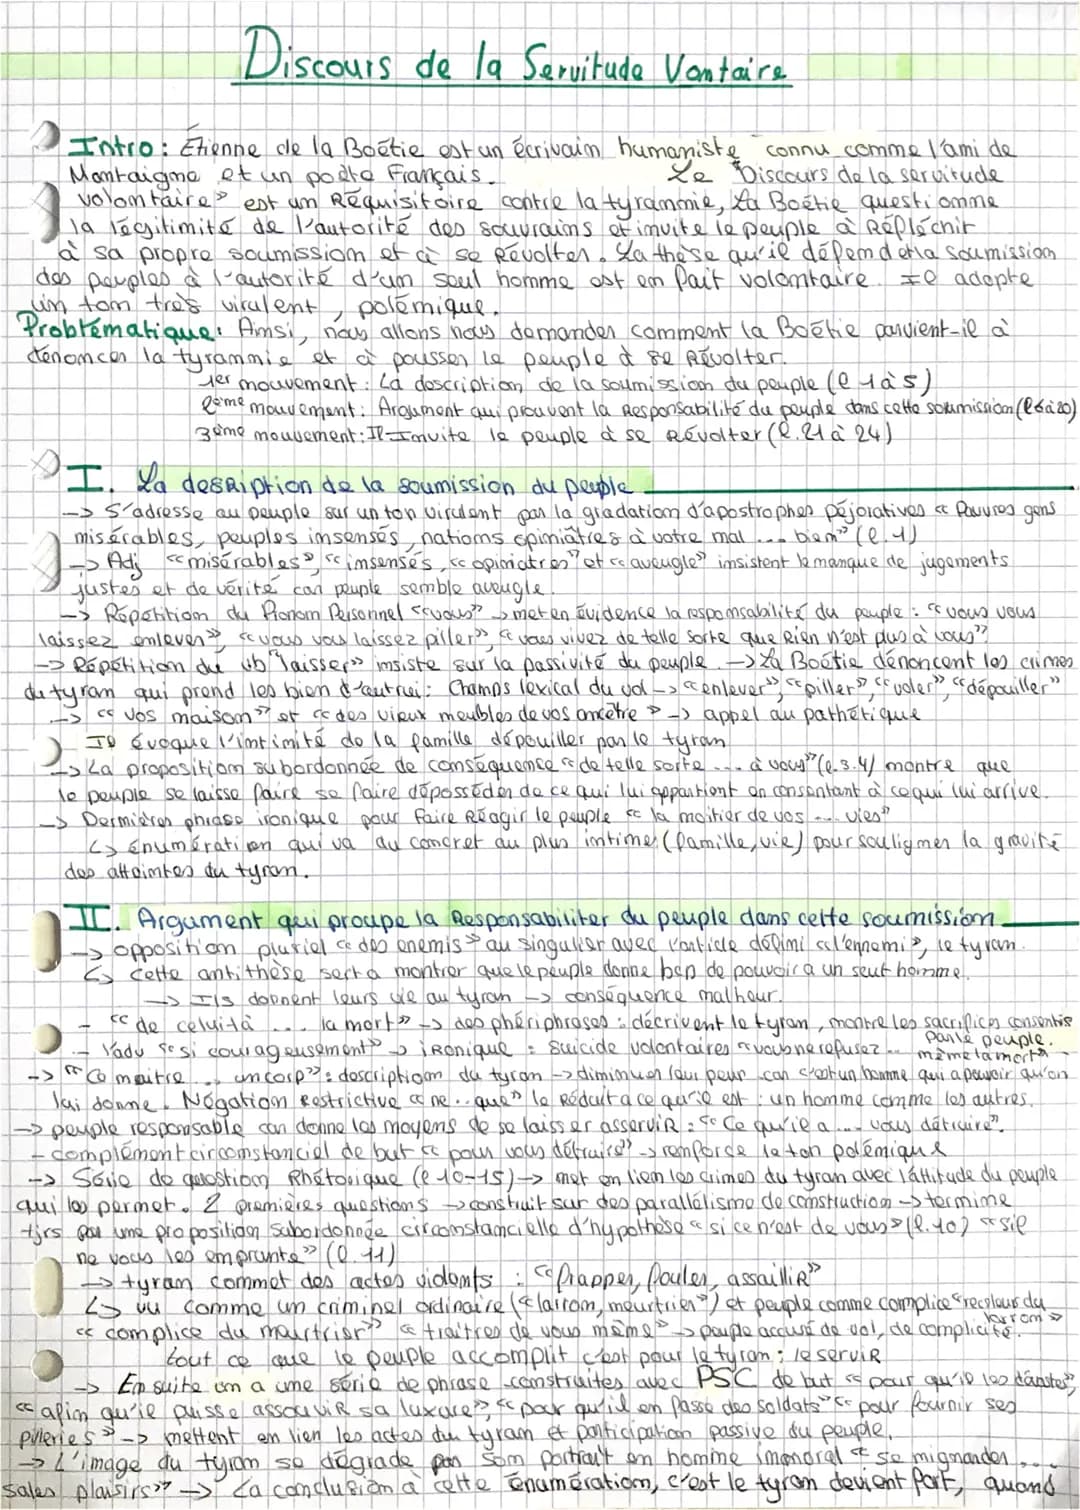 Discours de la Servitude Vontaire
Intro : Étienne de la Boétie est un écrivain humaniste connu comme l'ami de
Montaigne et un poète Français. Le "Discours de la servitude
volontaire" est un Réquisitoire contre la tyrannie, La Boétie questionne
la légitimité de l'autorité des souvrains et invite le peuple à Réfléchir
à sa propre soumission et à se Révolter. La thèse qu'il dépend et la soumission
des peuples à l'autorité d'un seul homme est en fait volontaire. Il adopte
un ton très virulent, polémique.
Problématique : Ainsi, nous allons nous demander comment la Boétie parvient-il à
dénoncer la tyrannie et à pousser le peuple à se Révolter.
1er mouvement : La description de la soumission du peuple (l 1 à 5)
2ème mouvement : Argument qui prouvent la Responsabilité du peuple dans cette soumission (l 6 à 20)
3ème mouvement : Il Invite le peuple à se Révolter (l. 21 à 24)
I. La desRiption de la soumission du peuple
-> S'adresse au peuple sur un ton virulent par la gradation d'apostrophes péjoratives « Pauvres gens
misérables, peuples insensés, nations opiniâtres à votre mal ... bien" (l. 1)
-> Adj «misérables», «insensés, «opiniatres" et «aveugle» insistent le manque de jugements
justes et de vérité car peuple semble aveugle.
-> Répétition du Pronom Personnel «vous» -> met en évidence la responsabilité du peuple : «vous vous
laissez enlever», «vous vous laissez piller», «vous vivez de telle sorte que Rien n'est plus à vous"
-> Répétition du vb "laisser» insiste sur la passivité du peuple. -> La Boétie dénoncent les crimes
du tyran qui prend les bien d'autrui : Champs lexical du vol -> «enlever", «piller», «voler», «dépouiller"
-> «vos maison" et «des vieux meubles de vos ancêtre» -> appel au pathétique
Il évoque l'intimité de la famille dépouiller par le tyran
-> La proposition subordonnée de conséquence «de telle sorte ... à vous" (l. 3.4) montre que
le peuple se laisse faire se faire déposséder de ce qui lui appartient en consentant à ce qui lui arrive.
-> Dernières phrase ironique pour faire Réagir le peuple « la moitier de vos ... vies"
↳ énumération qui va au concret au plus intime (famille, vie) pour souligner la gravité
des atteintes du tyran.
II. Argument qui proupe la Responsabiliter du peuple dans cette soumission
-> opposition pluriel «des enemis» au singulier avec l'article défini «l'ennemi», le tyran.
↳ cette antithèse sert à montrer que le peuple donne bcp de pouvoir a un seul homme.
-> Ils donnent leurs vie au tyran -> conséquence malheur.
- «de celui là ... la mort» -> des phériphrases : décrivent le tyran, montre les sacrifices consentis
par le peuple.
- l'adv «si courageusement» -> iRonique : Suicide volontaires «vous ne refusez ..
même la mort"
-> «Ce maitre ... un corp» : description du tyran -> diminuer leur peur car c'est un homme qui a pouvoir qu'on
lui donne. Négation Restrictive «ne .. que" le Réduit a ce qu'il est : un homme comme les autres.
-> peuple responsable car donne les moyens de se laisser asserviR : «Ce qu'il a .... vous détruire".
- complément circonstanciel de but «pour vous détruire" -> renforce le ton polémique
-> Série de question Rhétorique (l 10-15) -> met en lien les crimes du tyran avec l'attitude du peuple
qui les permet. 2 premières questions -> construit sur des parallélisme de construction -> termine
tjrs par une proposition subordonnée circonstancielle d'hypothèse «si ce n'est de vous» (l. 10) «s'il
ne vous les emprunte» (l. 11)
-> tyran commet des actes violents : «frapper, fouler, assailliR"
↳ vu comme un criminel ordinaire («larron, meurtrier") et peuple comme complice «receleur du
larron»
«complice du meurtrier» «traitres de vous même» -> peuple accusé de vol, de complicité.
tout ce que le peuple accomplit c'est pour le tyran ; le serviR
-> Ensuite on a une série de phrase construites avec PSC de but «pour qu'il les dévaste»,
«afin qu'il puisse assouviR sa luxure», «pour qu'il en fasse des soldats" «pour fournir ses
pilleries» -> mettent en lien les actes du tyran et participation passive du peuple.
-> L'image du tyran se dégrade par son portrait en homme immoral «se mignarder ...
sales plaisirs» -> La conclusion à cette énumération, c'est le tyran devient fort, quand